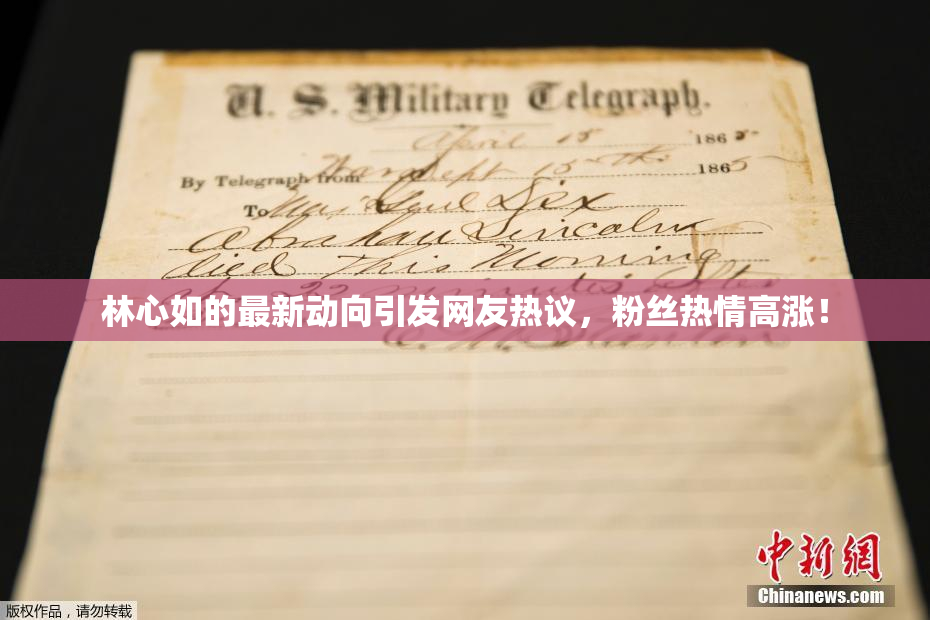 U. S. Military Telegraph.
April 15 1865
By Telegraph from War Dept 15th 1865
To Maj Genl Dix
Abraham Lincoln
died This Morning
at 22 minutes after
林心如的最新动向引发网友热议，粉丝热情高涨！
E. M. Stanton
中新网
Chinanews.com
版权作品，请勿转载